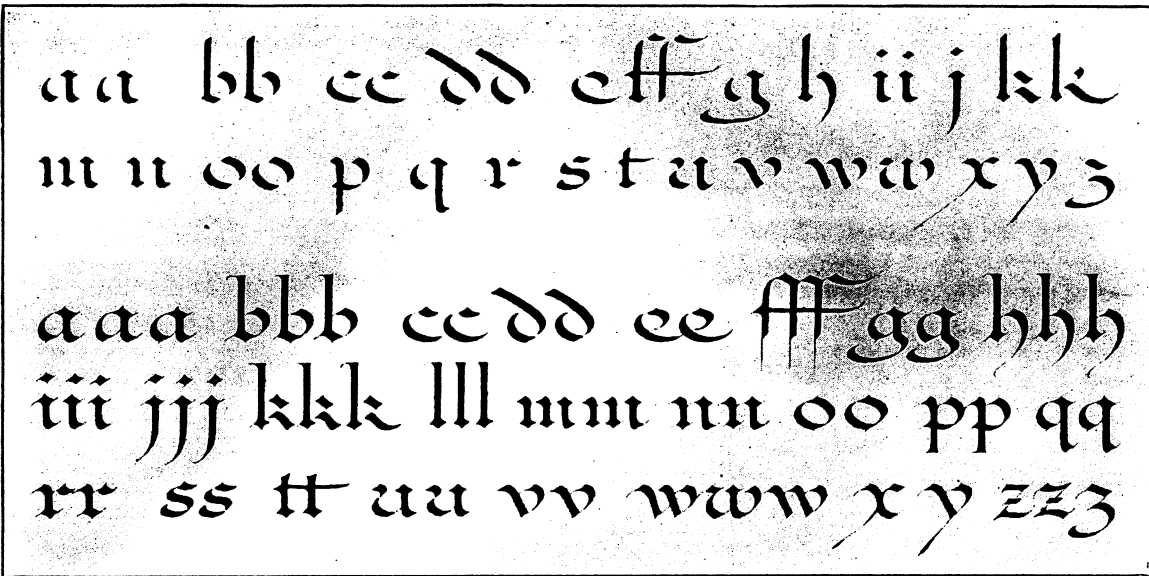 aa bb cc dd eff g h ii j kk
m n oo p q r s t u v w w x y z
aaa bbb cc dd ee fff gg hhh
iii jjj kkk lll mm nn oo pp qq
rr ss tt uu vv www x y zzz